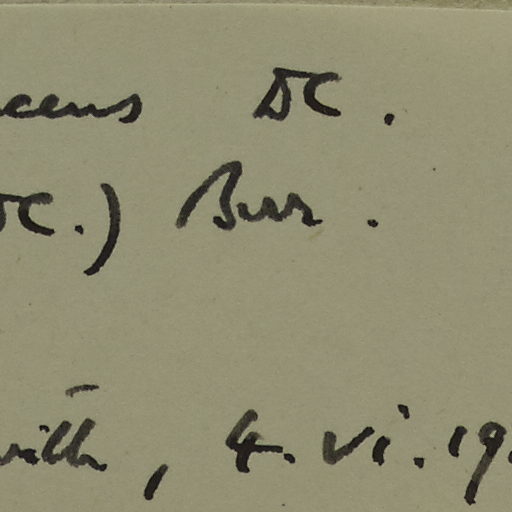 cens DC.
DC.) Burr.
with, 4.vi.19